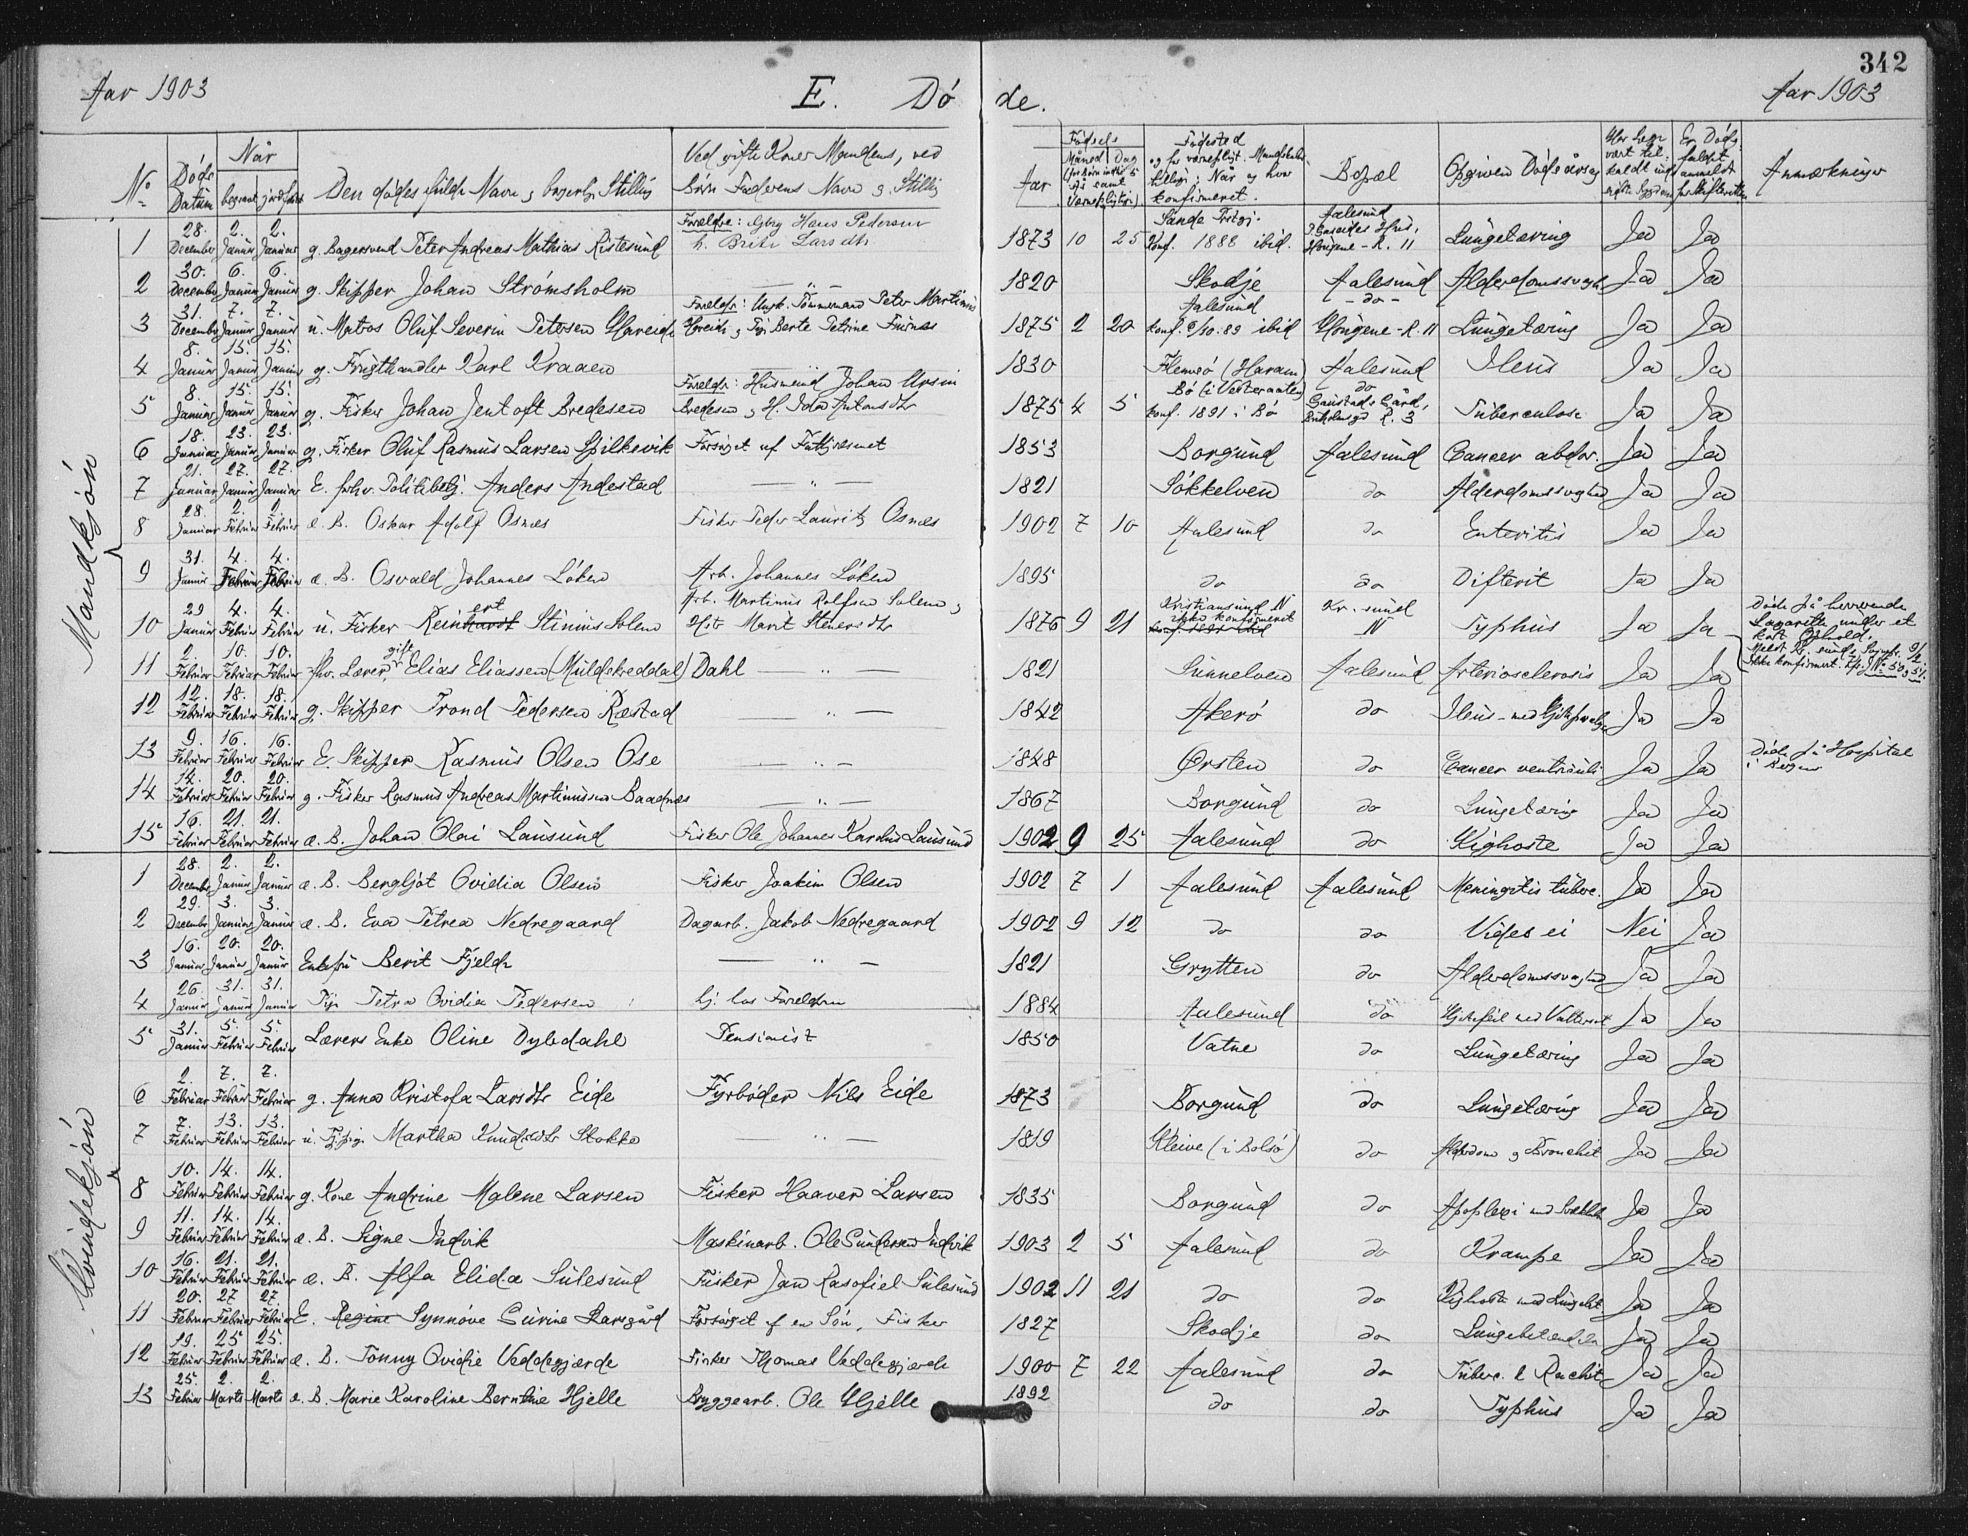 342
Aar 1903 E. Dö de. Aar 1903
No Döds Datum Når begravet jordfæstet Den dödes fulde Navn, borgerlige Stilling Ved gifte Koner Mandens, ved Börn Faderens Navn og Stilling Aar Födsels Måned Dag Födested konfirmeret. Bopæl Opgiven Dödsårsag Anmærkninger
Mandkjön
1 28. December 2. Januar 2. Januar g. Bagersvend Peter Andreas Mathias Ristesund Forældre: Hans Pedersen h. Brite Larsdtr 1873 10 25 Sande Konf. 1888 ibid. Aalesund R. 11 Lungetæring Ja Ja
2 30. December 6. Januar 6. Januar g. Skipper Johan Strömsholm — " — 1820 Skodje Aalesund Alderdomssvagh. Ja Ja
3 31. December 7. Januar 7. Januar u. Matros Oluf Severin Petersen Hareide Forældr: Ungk. Tömmermand Peter Martinus Hareide og Pige Berte Petrine Furnæs 1875 2 20 Aalesund konf. 6/10.89 ibid - do - R. 11 Lungetæring Ja Ja
4 8. Januar 15. Januar 15. Januar g. Frugthandler Karl Kraaen — 1830 Flemsö (Haram) Aalesund Ileus Ja Ja
5 8. Januar 15. Januar 15. Januar g. Fisker Johan Jentoft Bredesen Forældr: Husmend Johan Ursin Bredesen og H. Ida Antonsdtr 1875 4 5 Bö (i Vesteraalen) konf. 1891 i Bö do Gaustads Gård, R. 3 Tuberculose Ja Ja
6 18. Januar 23. Januar 23. Januar g. Fisker Oluf Rasmus Larsen Spilkevik Forsörget af Fattigvæsenet 1853 Borgund Aalesund Cancer abdom. Ja Ja
7 21. Januar 27. Januar 27. Januar E. fhv. Politibetj. Anders Andestad — " — 1821 Sökkelven do Alderdomssvaghed Ja Ja
8 28. Januar 2. Februar 2. Februar æ. B. Oskar Adolf Osnes Fisker Peder Lauritz Osnes 1902 7 10 Aalesund do Enteritis Ja Ja
9 31. Januar 4. Februar 4. Februar æ. B. Osvald Johannes Löken Arb. Johannes Löken 1895 do do Difterit Ja Ja
10 29 Januar 4. Februar 4. Februar u. Fisker Reinhardt ert Stinius Solem Arb. Martinus Rolfsen Solem og Htr Marit Stenersdtr 1876 9 21 Kristiansund N ikke konfirmeret Kr. sund N Typhus Ja Ja Döde på herværende Lazareth under et kort Ophold. Ikke konfirmert.
11 2. Februar 10. Februar 10. Februar fhv. Lærer, gift Elias Eliassen (Muldskeddal) Dahl — " — 1821 Sunnelven Aalesund Arteriosclerosis Ja Ja
12 12. Februar 18. Februar 18. Februar g. Skipper Trond Pedersen Ræstad — " — 1842 Akerö do Ileus Ja Ja
13 9. Februar 16. Februar 16. Februar E. Skipper Rasmus Olsen Ose — " — 1848 Örsten do Cancer ventriculi Ja Ja Döde på Hospital i Bergen
14 14. Februar 20. Februar 20. Februar g. Fisker Rasmus Andreas Martinussen Baadnes — " — 1867 Borgund do Lungetæring Ja Ja
15 16. Februar 21. Februar 21. Februar æ. B. Johan Olai Lausund Fisker Ole Johannes Karolius Lausund 1902 9 25 Aalesund do Kighoste Ja Ja
Kvindekjön
1 28. December 2. Januar 2. Januar æ. B. Bergljot Ovidia Olsen Fisker Joakim Olsen 1902 7 1 Aalesund Aalesund Meningitis tuberc. Ja Ja
2 29. December 3. Januar 3. Januar æ. B. Eva Petrea Nedregaard Dagarb. Jakob Nedregaard 1902 9 12 do do Vides ei Nei Ja
3 16. Januar 20. Januar 20. Januar Enkefru Berit Fjelde — " — 1821 Grytten do Alderdomssvaghed Ja Ja
4 26. Januar 31. Januar 31. Januar Pige Petra Ovidia Pedersen hj. hos Forældrene 1884 Aalesund do Hjertefeil med Vattersot Ja Ja
5 31. Januar 5. Februar 5. Februar Lærers Enke Oline Dybdahl Pensionist 1850 Vatne do Lungetæring Ja Ja
6 2. Februar 7. Februar 7. Februar g. Anna Kristofa Larsdtr Eide Fyrböder Nils Eide 1873 Borgund do Lungetæring Ja Ja
7 7. Februar 13. Februar 13. Februar u. Fhv. Pige Martha Knudsdtr Stokke — " — 1819 Kleive (i Bolsö) do Alderdom og Bronchit Ja Ja
8 10. Februar 14. Februar 14. Februar g. Kone Andrine Malene Larsen Fisker Haaver Larsen 1835 Borgund do Apoplexi Ja Ja
9 11. Februar 14. Februar 14. Februar æ. B. Signe Indvik Maskinarb. Ole Sundersen Indvik 1903 2 5 Aalesund do Krampe Ja Ja
10 16. Februar 21. Februar 21. Februar æ. B. Alfa Elida Sulesund Fisker Jan Rasofiel Sulesund 1902 11 21 do do Kighoste med Lungebet. Ja Ja
11 20. Februar 27 Februar 27. Februar E. Regine Synnöve Surine Forsörget af en Sön, Fisker 1827 Skodje do Lungebetændelse Ja Ja
12 19. Februar 25 Februar 25. Februar æ. B. Jonny Ovidie Veddegjærde Fisker Thomas Veddegjærde 1900 7 22 Aalesund do Tuberc. & Rachit. Ja Ja
13 25. Februar 2. Marts 2. Marts æ. B. Marie Karoline Berntine Hjelle Bryggearb. Ole Hjelle 1892 do do Typhus Ja Ja